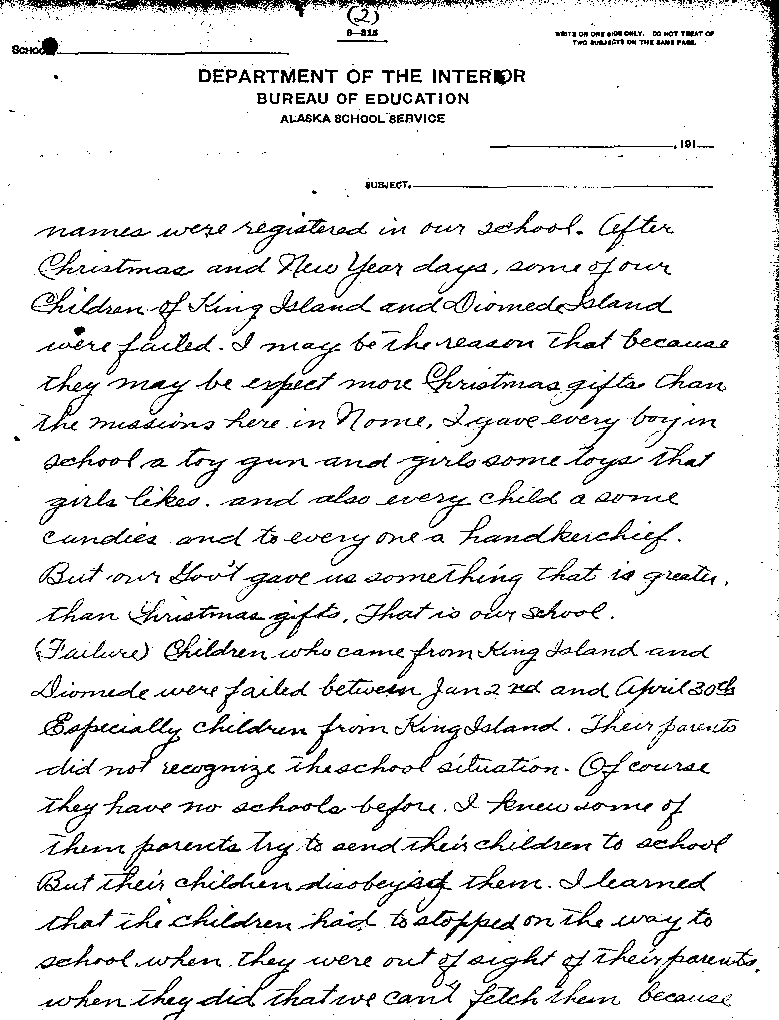 (2)
6-315
WRITE ON ONE SIDE ONLY. DO NOT TREAT OF
TWO SUBJECTS ON THE SAME PAGE.
SCHOOL
DEPARTMENT OF THE INTERIOR
BUREAU OF EDUCATION
ALASKA SCHOOL SERVICE
, 191
SUBJECT.
names were registered in our school. After
Christmas and New Year days, some of our
Children of King Island and Diomede Island
were failed. I may be the reason that because
they may be expect more Christmas gifts than
the missions here in Nome. I gave every boy in
school a toy gun and girls some toys that
girls likes. and also every child a some
candies and to every one a handkerchief.
But our Gov't gave us something that is greater,
than Christmas gifts, That is our school.
(Failure) Children who came from King Island and
Diomede were failed between Jan 2nd and April 30th
Especially children from King Island. Their parents
did not recognize the school situation. Of course
they have no schools before. I knew some of
them parents try to send their children to school
But their children disobeyed them. I learned
that the children had to stopped on the way to
school when they were out of sight of their parents.
when they did that we can't fetch them because